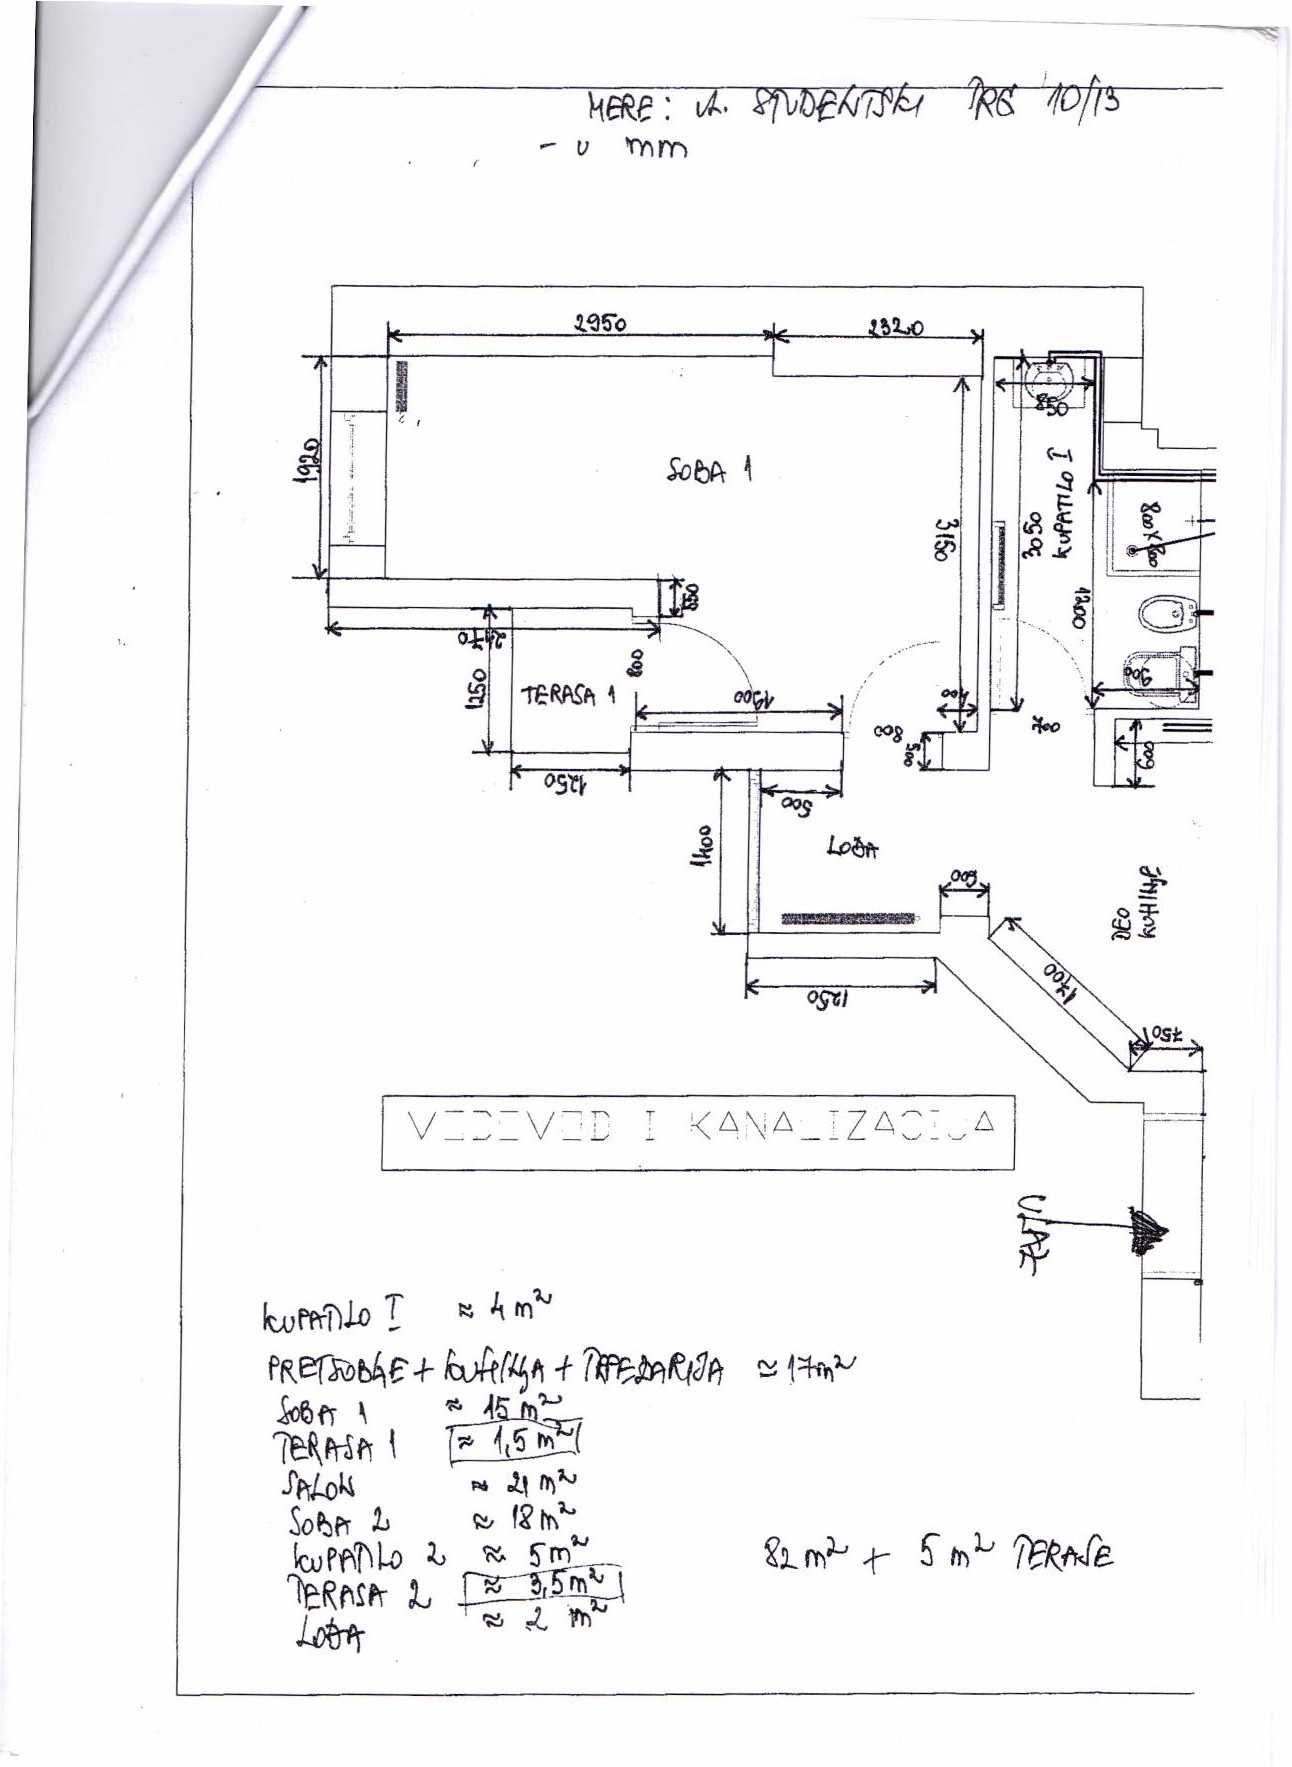 MERE: ul. STUDENTSKI TRG 10/13
- u mm
2950
2320
850
1920
SOBA 1
3150
3050
KUPATILO I
800x800
1200
550
2170
800
1250
TERASA 1
1900
900
800
500
700
600
1250
500
1400
LOĐA
600
DEO
KUHINJE
1700
1250
750
VODOVOD I KANALIZACIJA
ULAZ
KUPATILO I ≈ 4 m²
PRETSOBLJE + kuhinja + TRPEZARIJA ≈ 17m²
SOBA 1 ≈ 15 m²
TERASA 1 ≈ 1,5 m²
SALON ≈ 21 m²
SOBA 2 ≈ 18 m²
KUPATILO 2 ≈ 5m²
82 m² + 5 m² TERASE
TERASA 2 ≈ 3,5m²
LOĐA ≈ 2 m²